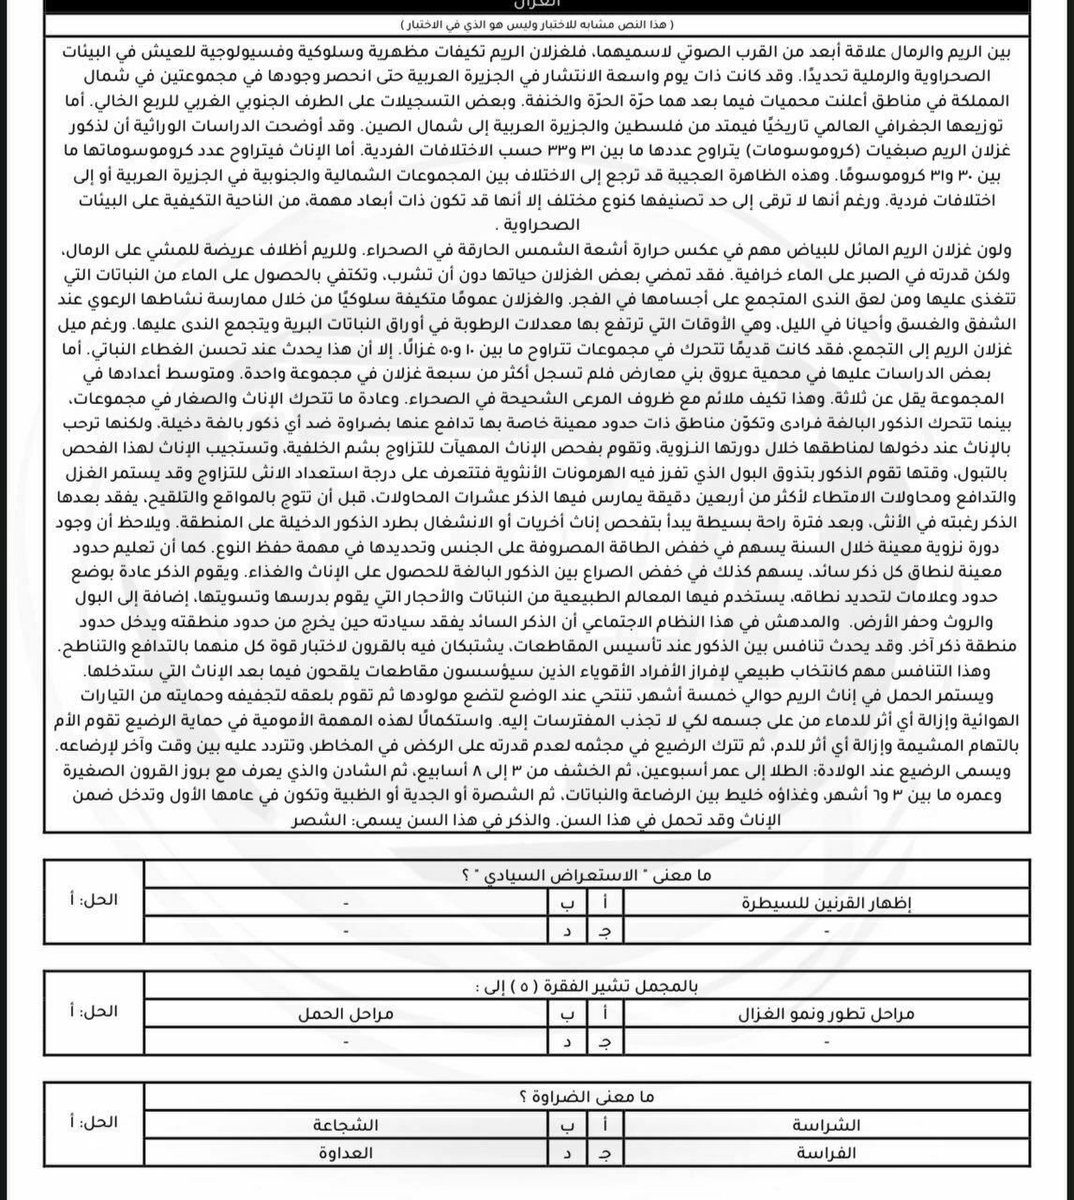 الغزال
( هذا النص مشابه للاختبار وليس هو الذي في الاختبار )
بين الريم والرمال علاقة أبعد من القرب الصوتي لاسميهما، فلغزلان الريم تكيفات مظهرية وسلوكية وفسيولوجية للعيش في البيئات
الصحراوية والرملية تحديدًا. وقد كانت ذات يوم واسعة الانتشار في الجزيرة العربية حتى انحصر وجودها في مجموعتين في شمال
المملكة في مناطق أعلنت محميات فيما بعد هما حرّة الحرّة والخنفة. وبعض التسجيلات على الطرف الجنوبي الغربي للربع الخالي. أما
توزيعها الجغرافي العالمي تاريخيًا فيمتد من فلسطين والجزيرة العربية إلى شمال الصين. وقد أوضحت الدراسات الوراثية أن لذكور
غزلان الريم صبغيات (كروموسومات) يتراوح عددها ما بين ٣١ و٣٣ حسب الاختلافات الفردية. أما الإناث فيتراوح عدد كروموسوماتها ما
بين ٣٠ و٣١ كروموسومًا. وهذه الظاهرة العجيبة قد ترجع إلى الاختلاف بين المجموعات الشمالية والجنوبية في الجزيرة العربية أو إلى
اختلافات فردية. ورغم أنها لا ترقى إلى حد تصنيفها كنوع مختلف إلا أنها قد تكون ذات أبعاد مهمة، من الناحية التكيفية على البيئات
الصحراوية .
ولون غزلان الريم المائل للبياض مهم في عكس حرارة أشعة الشمس الحارقة في الصحراء. وللريم أظلاف عريضة للمشي على الرمال،
ولكن قدرته في الصبر على الماء خرافية. فقد تمضي بعض الغزلان حياتها دون أن تشرب، وتكتفي بالحصول على الماء من النباتات التي
تتغذى عليها ومن لعق الندى المتجمع على أجسامها في الفجر. والغزلان عمومًا متكيفة سلوكيًا من خلال ممارسة نشاطها الرعوي عند
الشفق والغسق وأحيانا في الليل، وهي الأوقات التي ترتفع بها معدلات الرطوبة في أوراق النباتات البرية ويتجمع الندى عليها. ورغم ميل
غزلان الريم إلى التجمع، فقد كانت قديمًا تتحرك في مجموعات تتراوح ما بين ١٠ و٥٠ غزالًا. إلا أن هذا يحدث عند تحسن الغطاء النباتي. أما
بعض الدراسات عليها في محمية عروق بني معارض فلم تسجل أكثر من سبعة غزلان في مجموعة واحدة. ومتوسط أعدادها في
المجموعة يقل عن ثلاثة. وهذا تكيف ملائم مع ظروف المرعى الشحيحة في الصحراء. وعادة ما تتحرك الإناث والصغار في مجموعات،
بينما تتحرك الذكور البالغة فرادى وتكوّن مناطق ذات حدود معينة خاصة بها تدافع عنها بضراوة ضد أي ذكور بالغة دخيلة، ولكنها ترحب
بالإناث عند دخولها لمناطقها خلال دورتها النـزوية، وتقوم بفحص الإناث المهيآت للتزاوج بشم الخلفية، وتستجيب الإناث لهذا الفحص
بالتبول، وقتها تقوم الذكور بتذوق البول الذي تفرز فيه الهرمونات الأنثوية فتتعرف على درجة استعداد الانثى للتزاوج وقد يستمر الغزل
والتدافع ومحاولات الامتطاء لأكثر من أربعين دقيقة يمارس فيها الذكر عشرات المحاولات، قبل أن تتوج بالمواقع والتلقيح، يفقد بعدها
الذكر رغبته في الأنثى، وبعد فترة راحة بسيطة يبدأ بتفحص إناث أخريات أو الانشغال بطرد الذكور الدخيلة على المنطقة. ويلاحظ أن وجود
دورة نزوية معينة خلال السنة يسهم في خفض الطاقة المصروفة على الجنس وتحديدها في مهمة حفظ النوع. كما أن تعليم حدود
معينة لنطاق كل ذكر سائد، يسهم كذلك في خفض الصراع بين الذكور البالغة للحصول على الإناث والغذاء. ويقوم الذكر عادة بوضع
حدود وعلامات لتحديد نطاقه، يستخدم فيها المعالم الطبيعية من النباتات والأحجار التي يقوم بدرسها وتسويتها، إضافة إلى البول
والروث وحفر الأرض. والمدهش في هذا النظام الاجتماعي أن الذكر السائد يفقد سيادته حين يخرج من حدود منطقته ويدخل حدود
منطقة ذكر آخر. وقد يحدث تنافس بين الذكور عند تأسيس المقاطعات، يشتبكان فيه بالقرون لاختبار قوة كل منهما بالتدافع والتناطح.
وهذا التنافس مهم كانتخاب طبيعي لإفراز الأفراد الأقوياء الذين سيؤسسون مقاطعات يلقحون فيما بعد الإناث التي ستدخلها.
ويستمر الحمل في إناث الريم حوالي خمسة أشهر، تنتحي عند الوضع لتضع مولودها ثم تقوم بلعقه لتجفيفه وحمايته من التيارات
الهوائية وإزالة أي أثر للدماء من على جسمه لكي لا تجذب المفترسات إليه. واستكمالًا لهذه المهمة الأمومية في حماية الرضيع تقوم الأم
بالتهام المشيمة وإزالة أي أثر للدم، ثم تترك الرضيع في مجثمه لعدم قدرته على الركض في المخاطر، وتتردد عليه بين وقت وآخر لإرضاعه.
ويسمى الرضيع عند الولادة: الطلا إلى عمر أسبوعين، ثم الخشف من ٣ إلى ٨ أسابيع، ثم الشادن والذي يعرف مع بروز القرون الصغيرة
وعمره ما بين ٣ و٦ أشهر، وغذاؤه خليط بين الرضاعة والنباتات، ثم الشصرة أو الجدية أو الظبية وتكون في عامها الأول وتدخل ضمن
الإناث وقد تحمل في هذا السن. والذكر في هذا السن يسمى: الشصر
ما معنى " الاستعراض السيادي " ؟
إظهار القرنين للسيطرة أ ب -
- جـ د -
الحل: أ
بالمجمل تشير الفقرة ( ٥ ) إلى :
مراحل تطور ونمو الغزال أ ب مراحل الحمل
- جـ د -
الحل: أ
ما معنى الضراوة ؟
الشراسة أ ب الشجاعة
الفراسة جـ د العداوة
الحل: أ